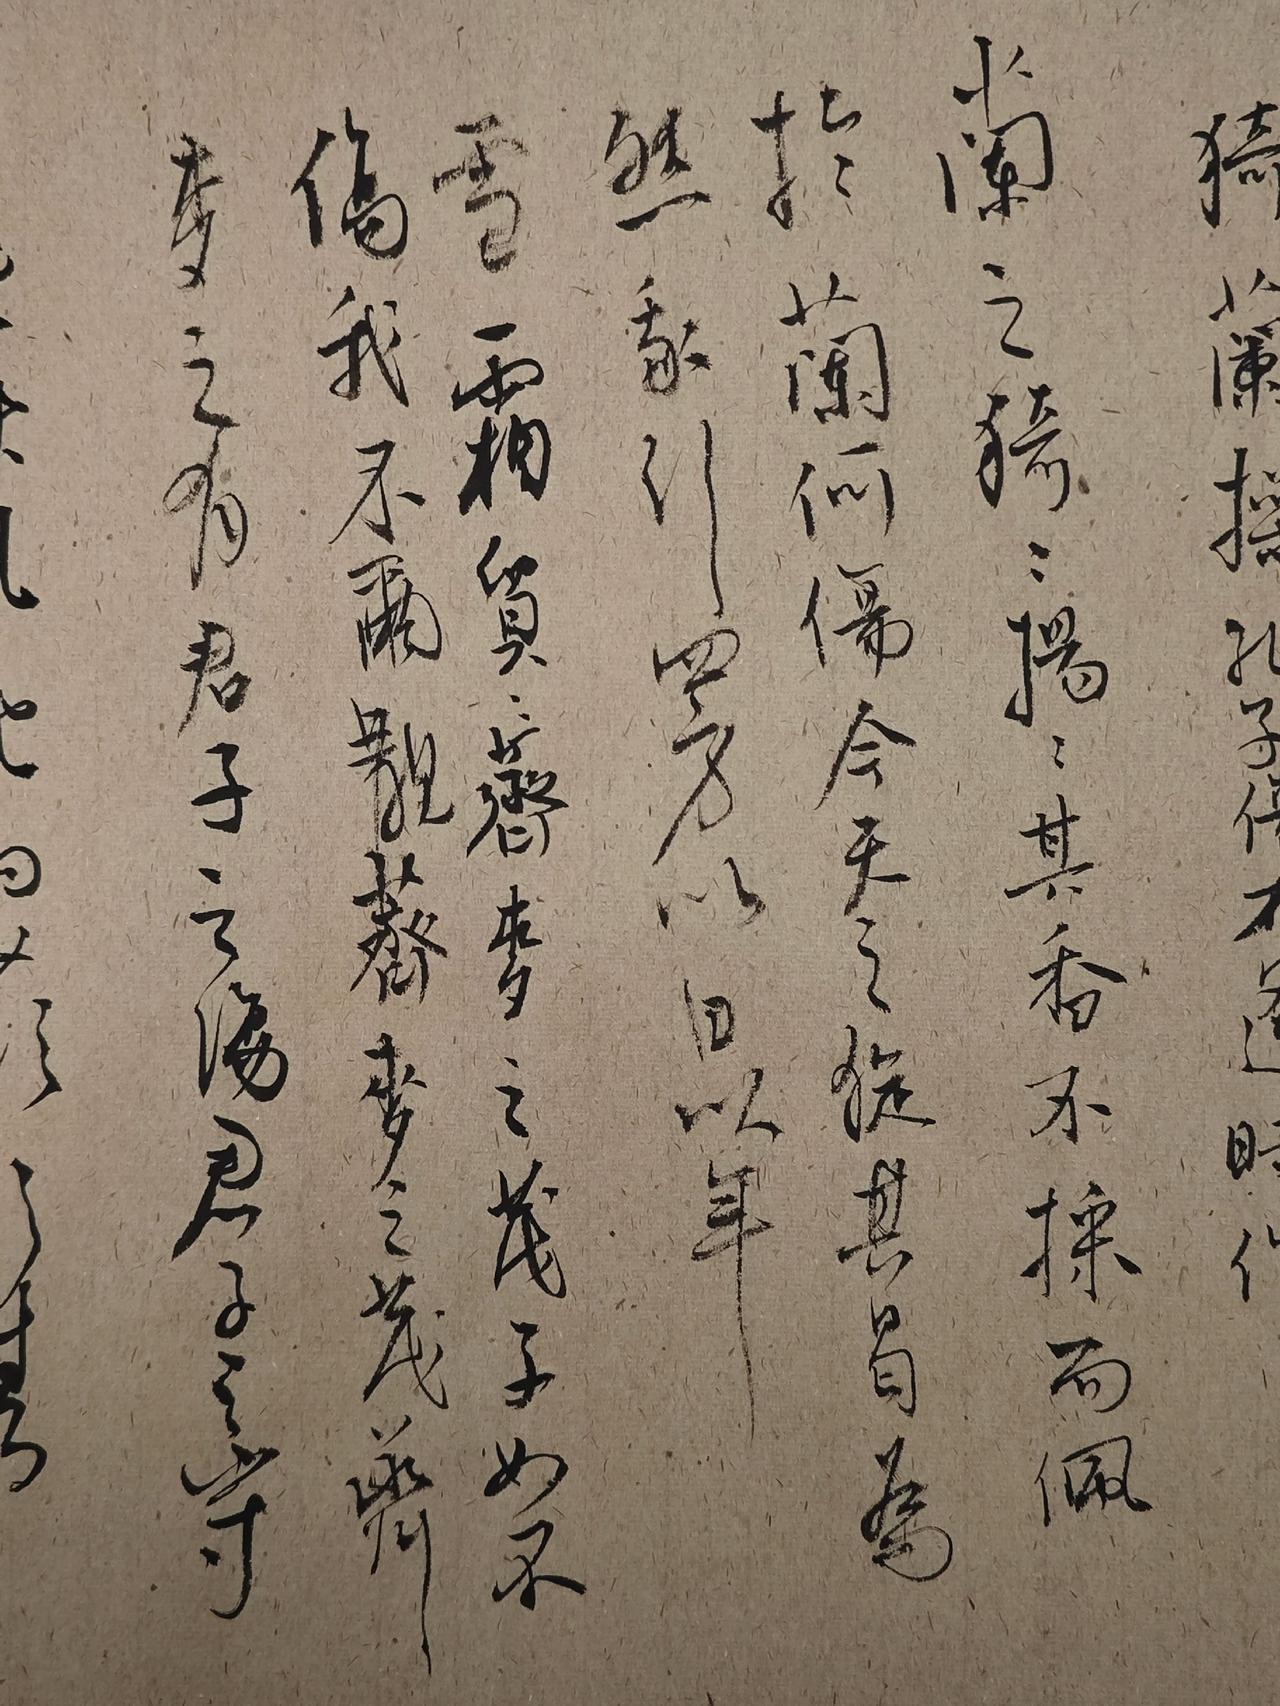 猗蘭操孔子傷不逢時作
蘭之猗〻揚〻其香不採而佩
於蘭何傷今天之旋其曷為
然我行四方以日以年
雪霜貿〻薺麥之茂子如不
傷我不爾覯薺麥之茂薺
麥之有君子之傷君子之守